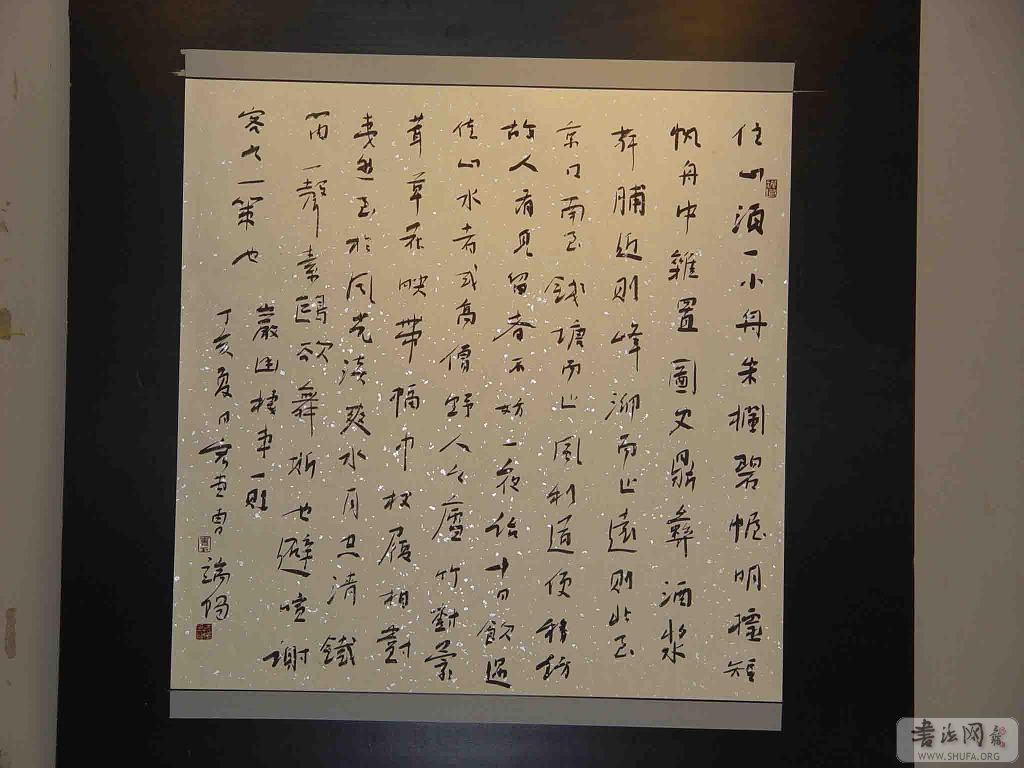 住山須一小舟朱欄碧幄明欞短
帆舟中雜置圖史鼎彝酒漿
荈脯近則峰泖而止遠則北至
京口南至錢塘而止風利道便移訪
故人有見留者不妨一夜話十日飲遇
佳山水者或高僧野人之廬竹對蒙
茸草花映帶幅巾杖履相對
夷然至於風光淡爽水月空清鐵
笛一聲素鷗欲舞斯也避喧謝
客之一策也
巖幽棲事一則
丁亥夏日 曹
端陽
书法网
WWW.SHUFA.ORG